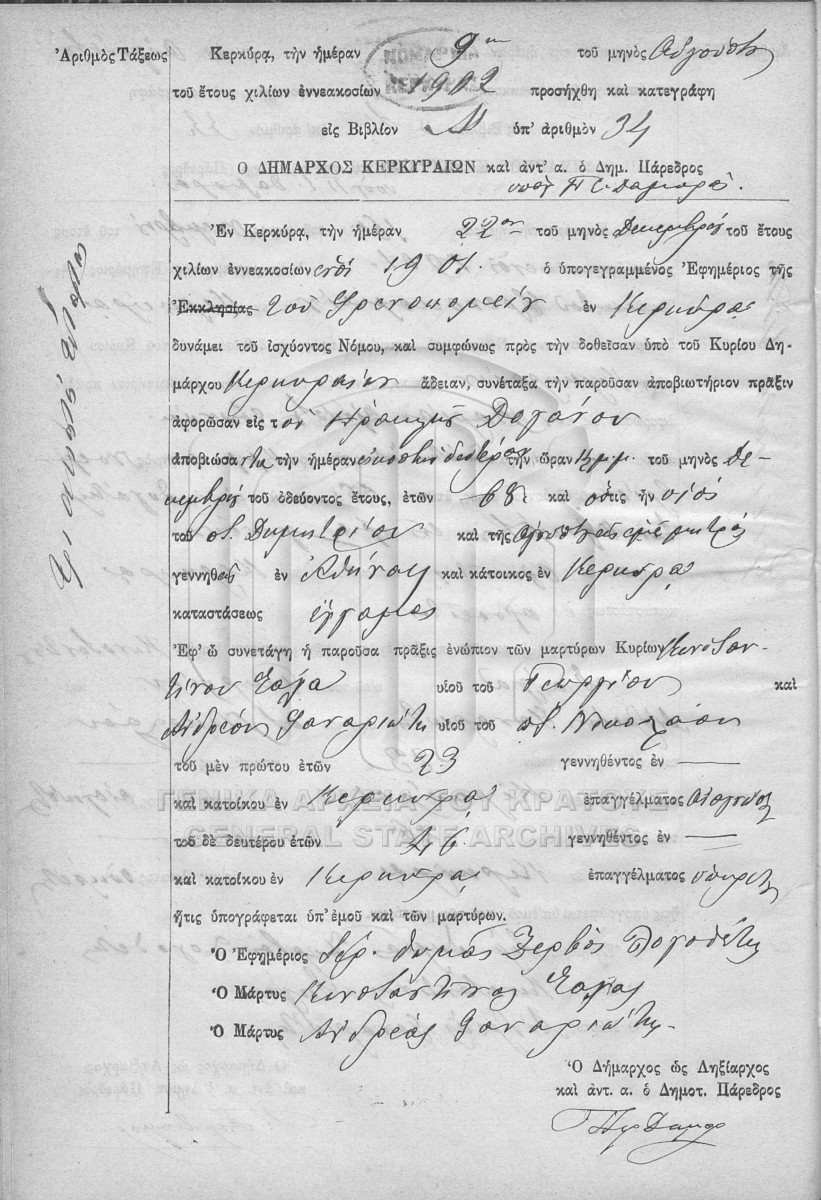 Ἀριθμὸς Τάξεως
Κερκύρᾳ, τὴν ἡμέραν 9ην τοῦ μηνὸς Αὐγούστου
τοῦ ἔτους χιλίων ἐννεακοσίων 1902 προσήχθη καὶ κατεγράφη
εἰς Βιβλίον ὑπ' ἀριθμὸν 34
Ο ΔΗΜΑΡΧΟΣ ΚΕΡΚΥΡΑΙΩΝ καὶ ἀντ' α. ὁ Δημ. Πάρεδρος
Ἐν Κερκύρᾳ, τὴν ἡμέραν 22αν τοῦ μηνὸς Δεκεμβρίου τοῦ ἔτους
χιλίων ἐννεακοσίων 1901. ὁ ὑπογεγραμμένος Ἐφημέριος τῆς
Ἐκκλησίας τοῦ Φρενοκομείου ἐν Κερκύρᾳ
δυνάμει τοῦ ἰσχύοντος Νόμου, καὶ συμφώνως πρὸς τὴν δοθεῖσαν ὑπὸ τοῦ Κυρίου Δη-
μάρχου Κερκυραίων ἄδειαν, συνέταξα τὴν παροῦσαν ἀποβιωτήριον πρᾶξιν
ἀφορῶσαν εἰς τὸν
ἀποβιώσαντα τὴν ἡμέραν εἰκοστὴν δευτέραν τὴν ὥραν τοῦ μηνὸς Δε-
κεμβρίου τοῦ ὁδεύοντος ἔτους, ἐτῶν καὶ ὅστις ἦν υἱὸς
τοῦ π. Δημητρίου καὶ τῆς ἀγνώστου μητρὸς
γεννηθεὶς ἐν Ἀθήναις καὶ κάτοικος ἐν Κερκύρᾳ
καταστάσεως ἔγγαμος
Ἐφ' ᾧ συνετάγη ἡ παροῦσα πρᾶξις ἐνώπιον τῶν μαρτύρων Κυρίων Κωνσταν-
τίνου υἱοῦ τοῦ Γεωργίου καὶ
Ἀνδρέου Φαναριώτη υἱοῦ τοῦ π. Νικολάου
τοῦ μὲν πρώτου ἐτῶν 23 γεννηθέντος ἐν —
καὶ κατοίκου ἐν Κερκύρᾳ ἐπαγγέλματος
τοῦ δὲ δευτέρου ἐτῶν 46 γεννηθέντος ἐν —
καὶ κατοίκου ἐν Κερκύρᾳ ἐπαγγέλματος ὑπηρέτη
ἥτις ὑπογράφεται ὑπ' ἐμοῦ καὶ τῶν μαρτύρων.
Ὁ Ἐφημέριος Ἱερ. Θωμᾶς Ζερβὸς
Ὁ Μάρτυς Κωνσταντῖνος
Ὁ Μάρτυς Ἀνδρέας Φαναριώτης
Ὁ Δήμαρχος ὡς Ληξίαρχος
καὶ ἀντ. α. ὁ Δημοτ. Πάρεδρος
ΓΕΝΙΚΑ ΑΡΧΕΙΑ ΤΟΥ ΚΡΑΤΟΥΣ
GENERAL STATE ARCHIVES